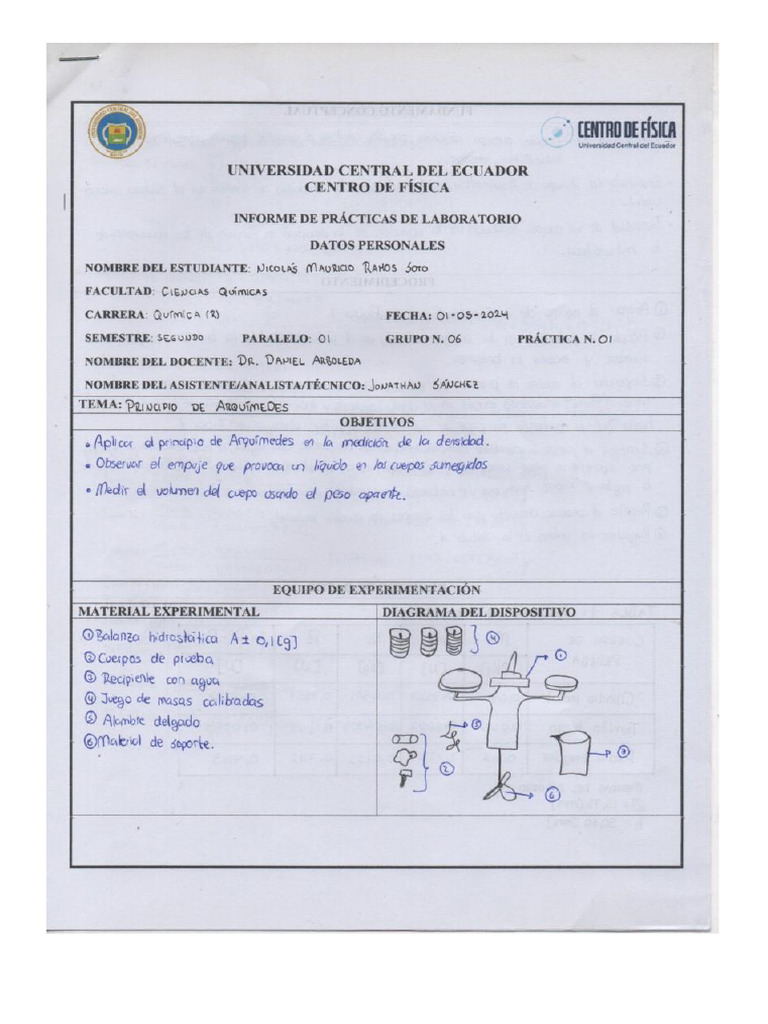 CENTRO DE FÍSICA
Universidad Central del Ecuador
UNIVERSIDAD CENTRAL DEL ECUADOR
CENTRO DE FÍSICA
INFORME DE PRÁCTICAS DE LABORATORIO
DATOS PERSONALES
NOMBRE DEL ESTUDIANTE: NICOLÁS MAURICIO RAMOS SOTO
FACULTAD: CIENCIAS QUÍMICAS
CARRERA: QUÍMICA (R) FECHA: 01-05-2024
SEMESTRE: SEGUNDO PARALELO: 01 GRUPO N. 06 PRÁCTICA N. 01
NOMBRE DEL DOCENTE: DR. DANIEL ARBOLEDA
NOMBRE DEL ASISTENTE/ANALISTA/TÉCNICO: JONATHAN SÁNCHEZ
TEMA: PRINCIPIO DE ARQUÍMEDES
OBJETIVOS
• Aplicar el principio de Arquímedes en la medición de la densidad.
• Observar el empuje que provoca un líquido en los cuerpos sumergidos
• Medir el volumen del cuepo usando el peso aparente.
EQUIPO DE EXPERIMENTACIÓN
MATERIAL EXPERIMENTAL
① Balanza hidrostática A± 0,1[g]
② Cuerpos de prueba
③ Recipiente con agua
④ Juego de masas calibradas
⑤ Alambre delgado
⑥ Material de soporte.
DIAGRAMA DEL DISPOSITIVO
④
①
⑤
②
③
⑥